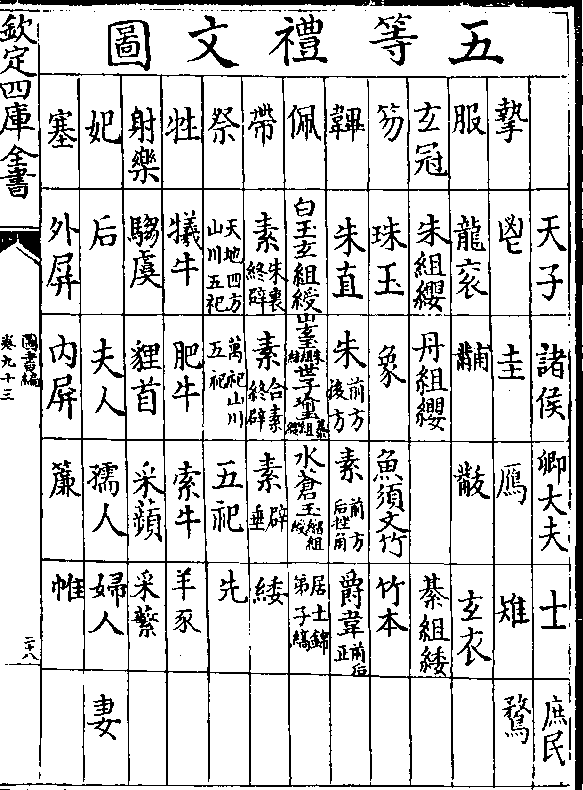 五等禮文圖
天子 諸侯 卿大夫 士 庶民
摯 鬯 圭 鴈 雉 鶩
服 龍衮 黼 黻 玄衣
玄冠 朱組纓 丹組纓 綦組緌
笏 珠玉 象 魚須文竹 竹本
韠 朱直 朱前方後方 素前方后挫角 爵韋前后正
佩 白玉玄組綬 山玄玉朱組綬世子瑜玉綦組綬 水蒼玉緇組綬 居士錦弟子縞
帶 素朱裏終辟 素合素終辟 素辟垂 緌
祭 天地四方山川五祀 萬祀山川五祀 五祀 先
牲 犧牛 肥牛 索牛 羊豕
射樂 騶虞 貍首 采蘋 采蘩
妃 后 夫人 孺人 婦人 妻
塞 外屏 内屏 簾 帷
欽定四庫全書
圖書編
卷九十三
二十八